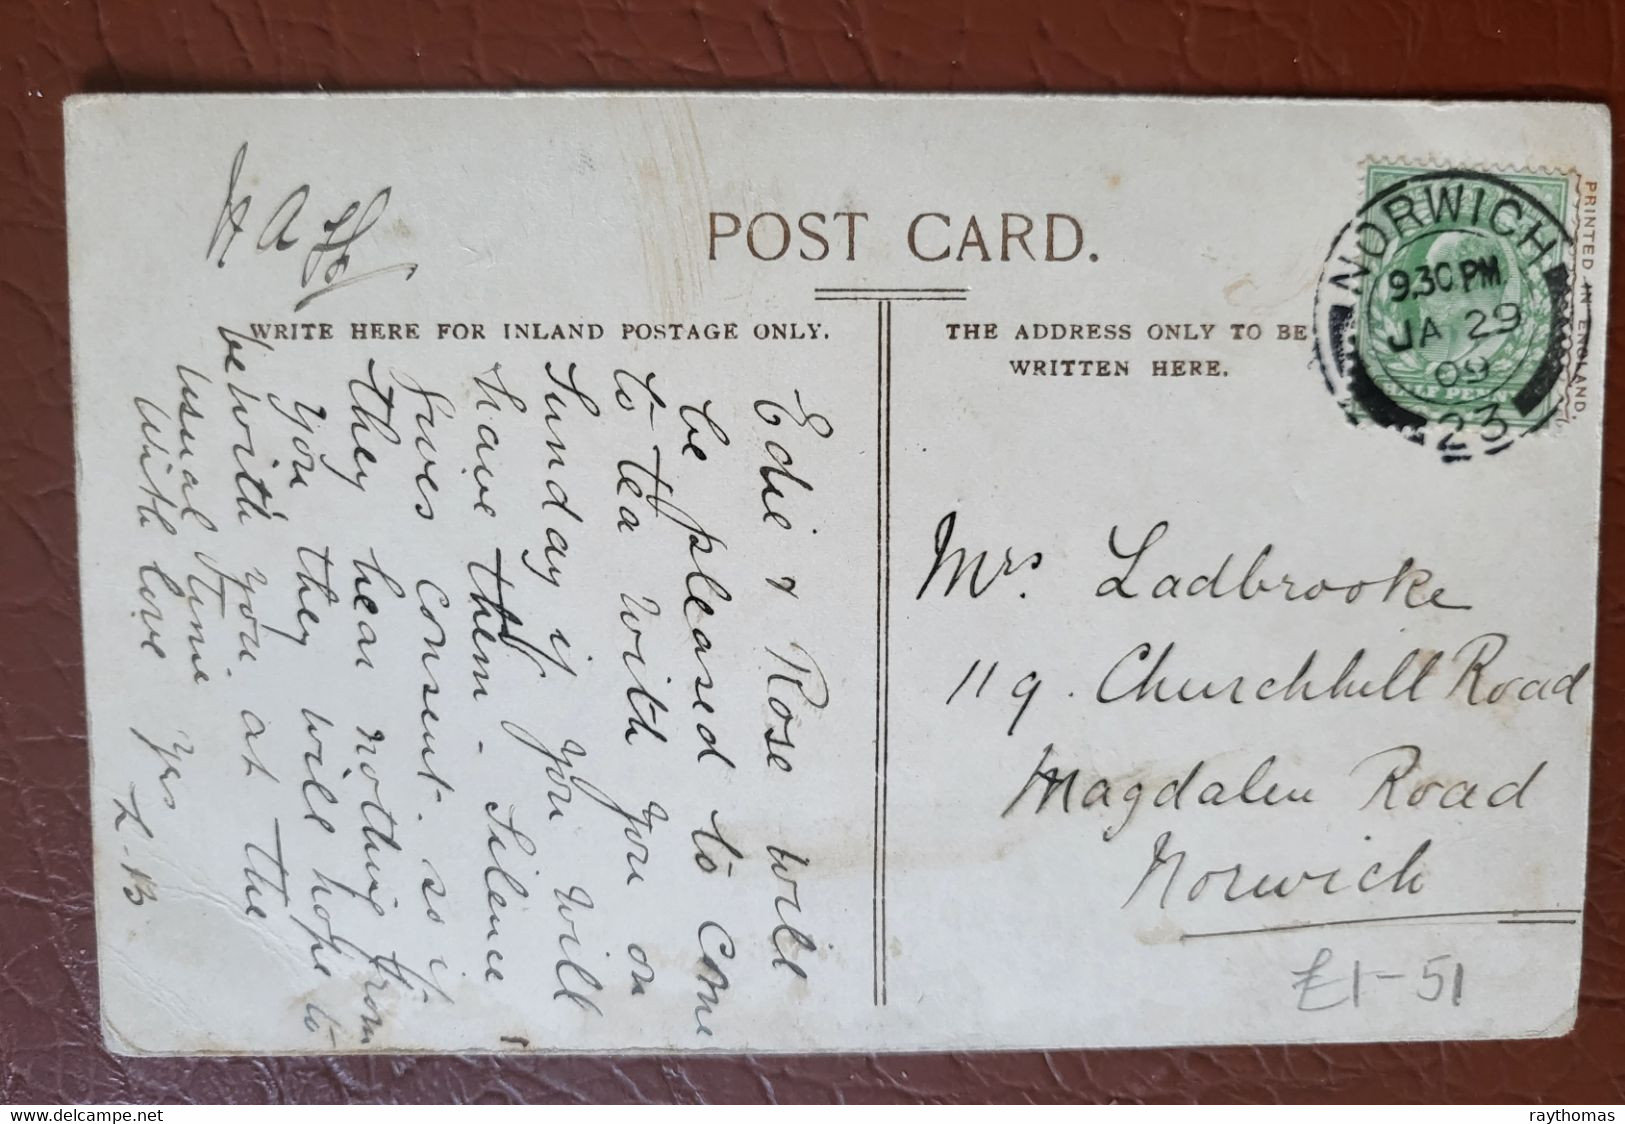 POST CARD.
WRITE HERE FOR INLAND POSTAGE ONLY.
THE ADDRESS ONLY TO BE
WRITTEN HERE.
PRINTED IN ENGLAND.
NORWICH
9.30 PM
JA 29
09
23
Edie & Rose will
be pleased to come
to tea with you on
Sunday if you will
have them - Silence
gives consent - so if
they hear nothing from
you they will hope to
be with you at the
usual time
With love Yrs
L-B
Mrs. Ladbrooke
119. Churchhill Road
Magdalen Road
Norwich
£1-51
delcampe.net
raythomas